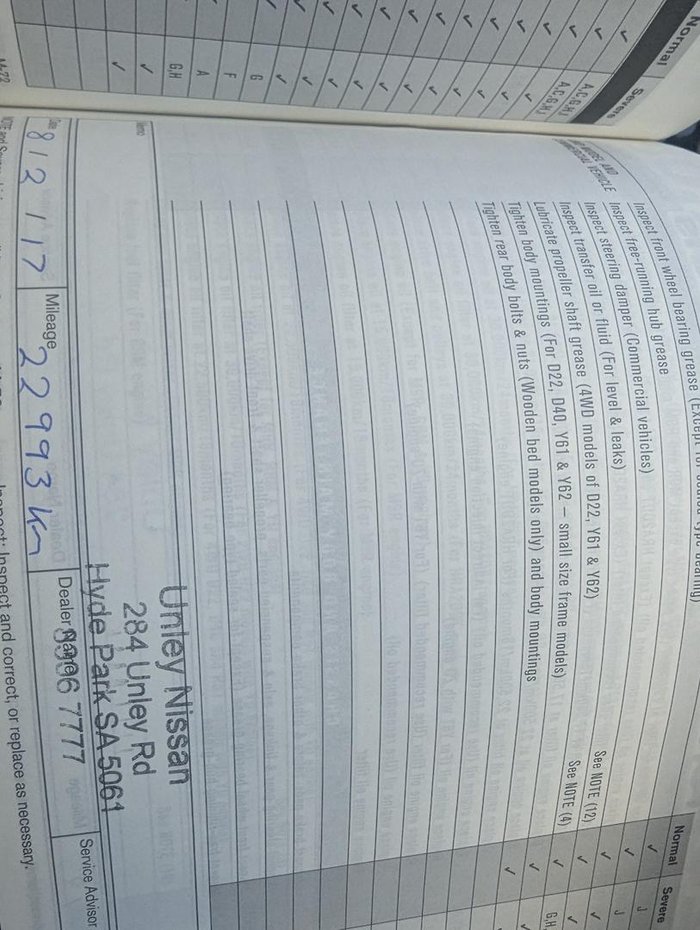 Normal
Severe
A,C,G,H,J
A,C,G,H,J
G
F
A
G,H
COMMERCIAL VEHICLE
Normal
Severe
Inspect front wheel bearing grease
J
Inspect free-running hub grease
J
Inspect steering damper (Commercial vehicles)
Inspect transfer oil or fluid (For level & leaks)
See NOTE (12)
Inspect propeller shaft grease (4WD models of D22, Y61 & Y62)
See NOTE (4)
G,H
Lubricate propeller shaft grease
Tighten body mountings (For D22, D40, Y61 & Y62 – small size frame models)
Tighten rear body bolts & nuts (Wooden bed models only) and body mountings
Memo
Unley Nissan
284 Unley Rd
Hyde Park SA 5061
Date
8/2/17
Mileage
22993 km
Dealer Name
7777
Service Advisor
Inspect: Inspect and correct, or replace as necessary.